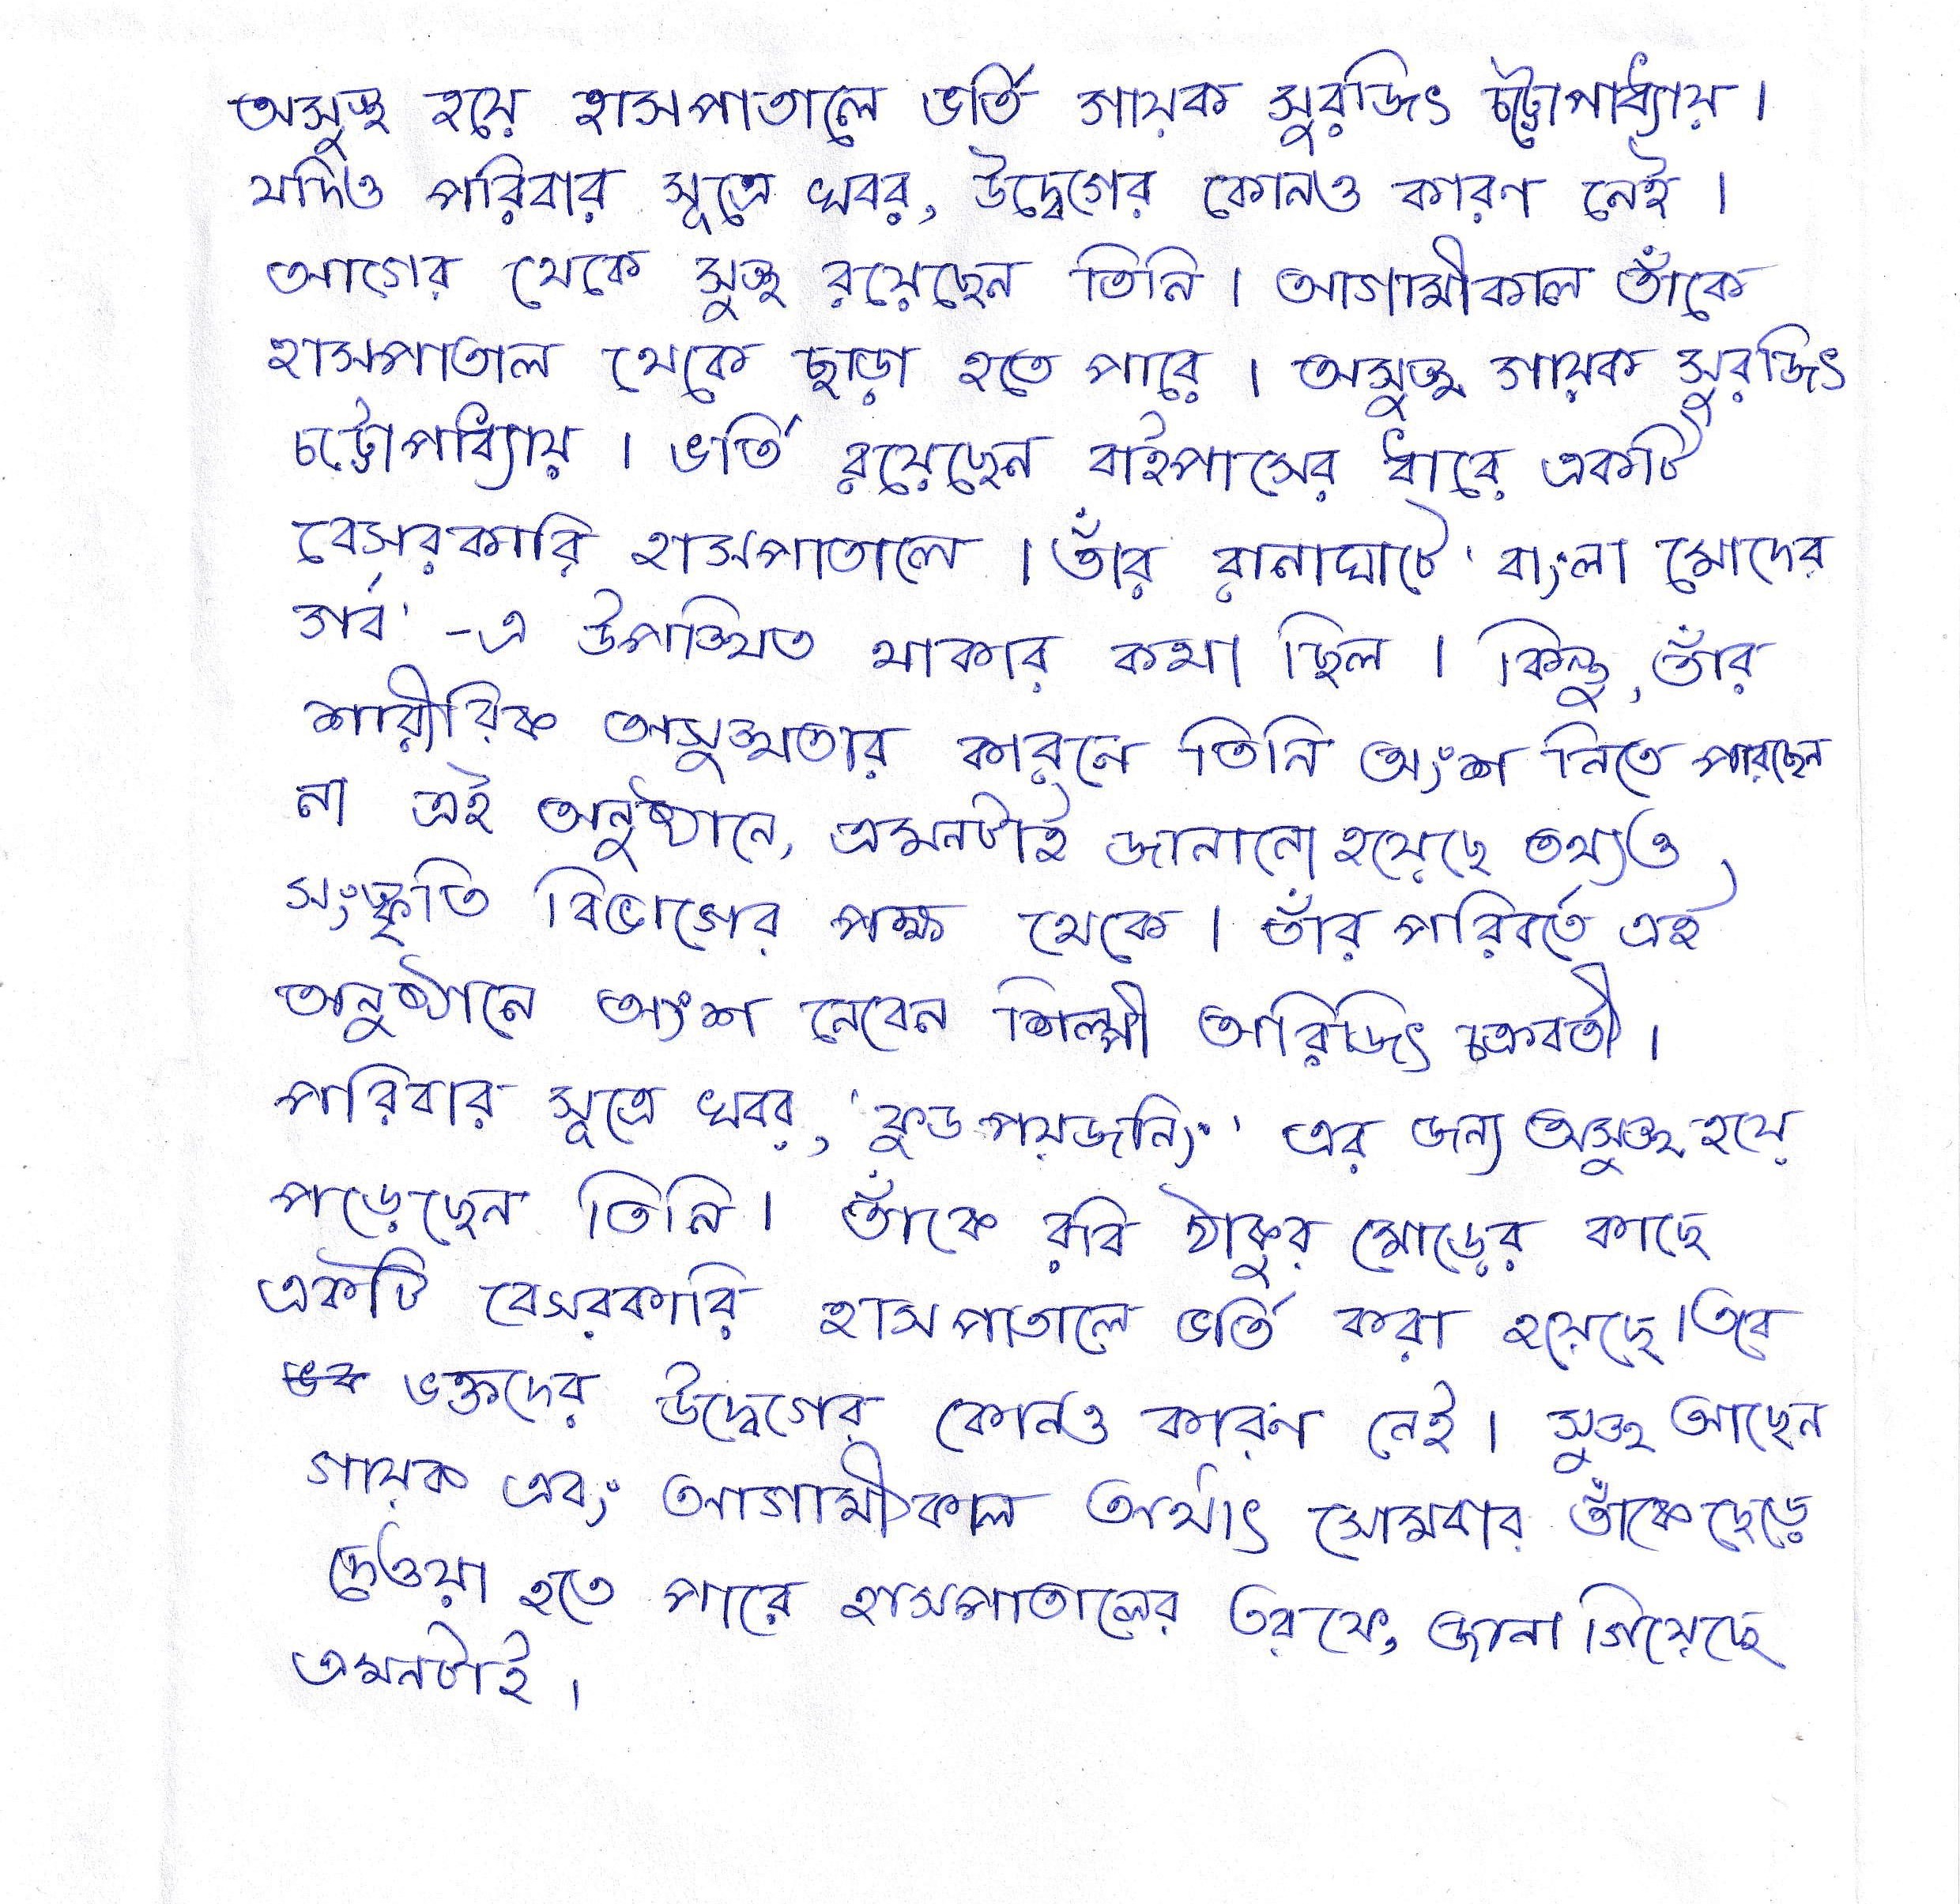 অসুস্থ হয়ে হাসপাতালে ভর্তি গায়ক সুরজিৎ চট্টোপাধ্যায়।
যদিও পরিবার সূত্রে খবর, উদ্বেগের কোনও কারণ নেই।
আগের থেকে সুস্থ রয়েছেন তিনি। আগামীকাল তাঁকে
হাসপাতাল থেকে ছাড়া হতে পারে। অসুস্থ গায়ক সুরজিৎ
চট্টোপাধ্যায়। ভর্তি রয়েছেন বাইপাসের ধারে একটি
বেসরকারি হাসপাতালে। তাঁর রানাঘাটে 'বাংলা মোদের
গর্ব' -এ উপস্থিত থাকার কথা ছিল। কিন্তু, তাঁর
শারীরিক অসুস্থতার কারনে তিনি অংশ নিতে পারছেন
না এই অনুষ্ঠানে, এমনটাই জানানো হয়েছে তথ্য ও
সংস্কৃতি বিভাগের পক্ষ থেকে। তাঁর পরিবর্তে এই
অনুষ্ঠানে অংশ নেবেন শিল্পী অরিজিৎ চক্রবর্তী।
পরিবার সূত্রে খবর, 'ফুড পয়জনিং' এর জন্য অসুস্থ হয়ে
পড়েছেন তিনি। তাঁকে রবি ঠাকুর মোড়ের কাছে
একটি বেসরকারি হাসপাতালে ভর্তি করা হয়েছে। তবে
ভক্তদের উদ্বেগের কোনও কারণ নেই। সুস্থ আছেন
গায়ক এবং আগামীকাল অর্থাৎ সোমবার তাঁকে ছেড়ে
দেওয়া হতে পারে হাসপাতালের তরফে, জানা গিয়েছে
এমনটাই।